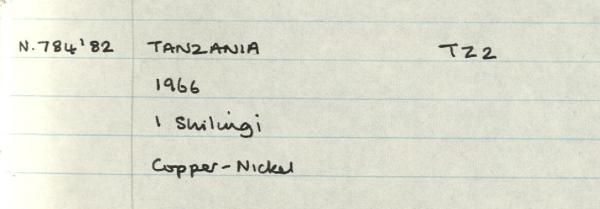 N.784'82 TANZANIA TZ2
1966
1 Shilingi
Copper-Nickel